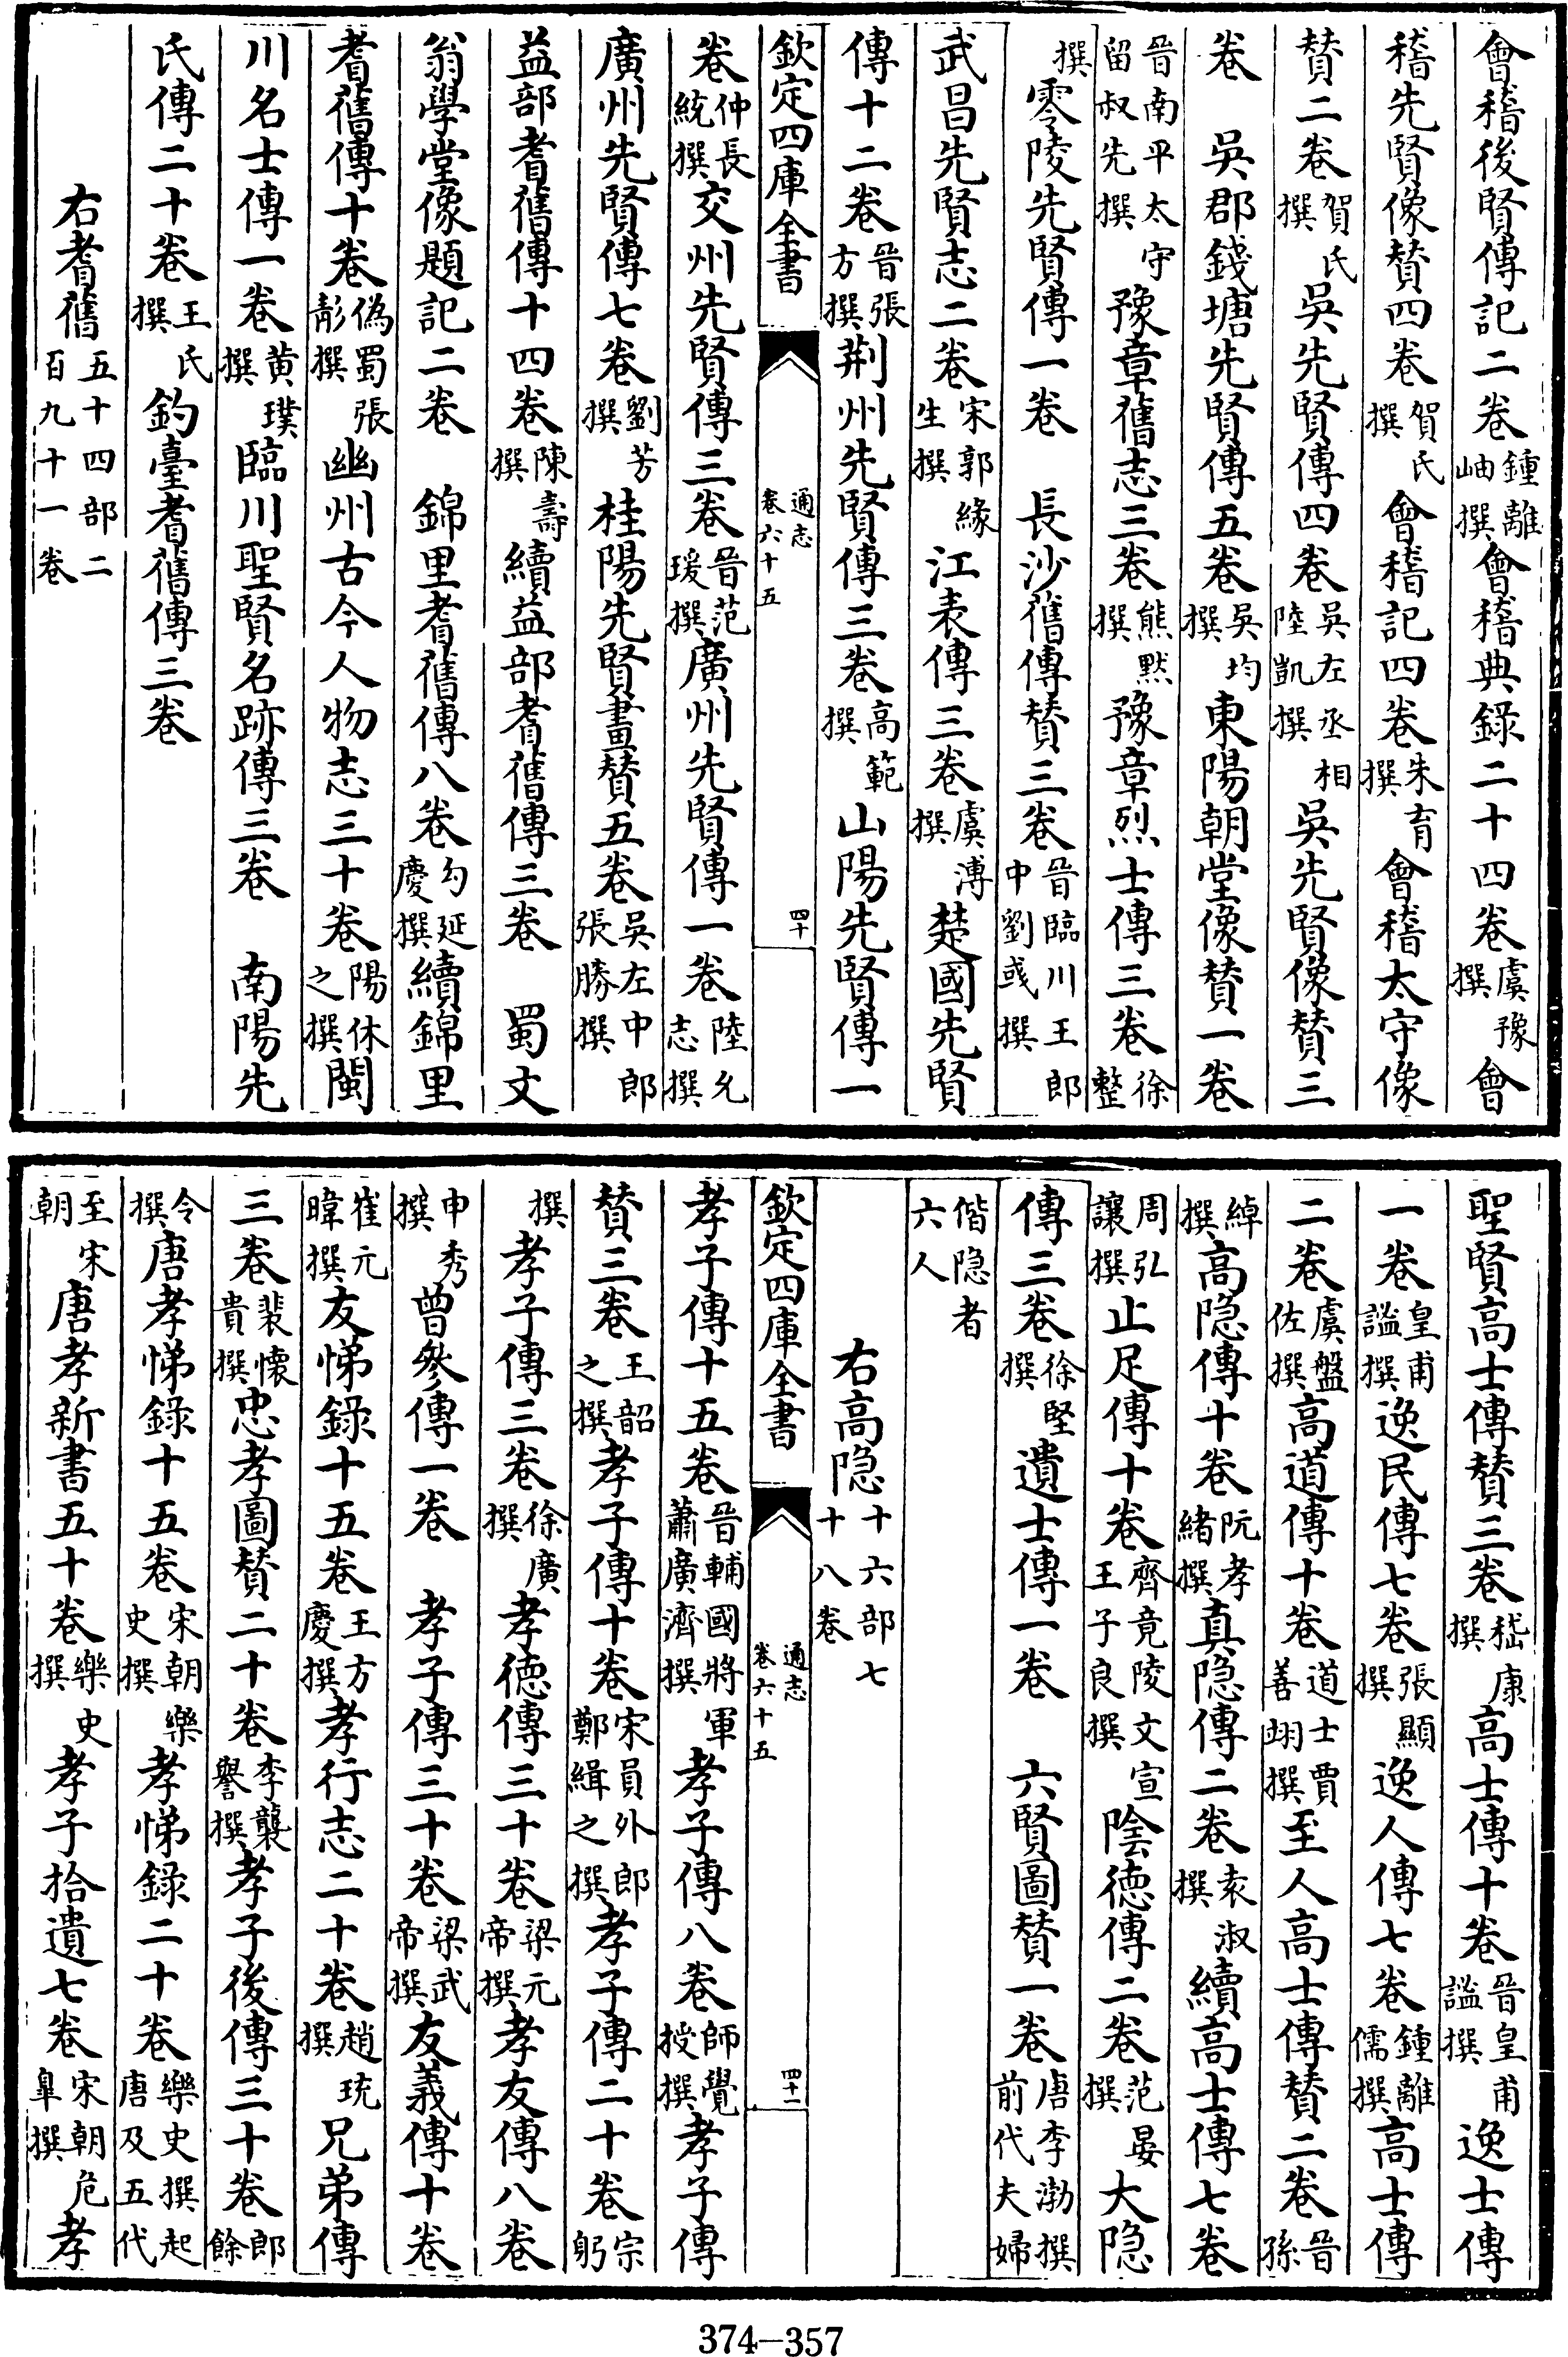 會稽後賢傳記二卷鍾離岫撰會稽典錄二十四卷虞豫撰會
稽先賢像贊四卷賀氏撰會稽記四卷朱育撰會稽太守像
贊二卷賀氏撰吳先賢傳四卷吳左丞相陸凱撰吳先賢像贊三
卷 吳郡錢塘先賢傳五卷吳均撰東陽朝堂像贊一卷
晉南平太守留叔先撰豫章舊志三卷熊默撰豫章烈士傳三卷徐整
撰零陵先賢傳一卷 長沙舊傳贊三卷晉臨川王郎中劉彧撰
武昌先賢志二卷宋郭緣生撰江表傳三卷虞溥撰楚國先賢
傳十二卷晉張方撰荆州先賢傳三卷高範撰山陽先賢傳一
欽定四庫全書 通志卷六十五 四十
卷仲長統撰交州先賢傳三卷晉范瑗撰廣州先賢傳一卷陸允志撰
廣州先賢傳七卷劉芳撰桂陽先賢畫贊五卷吳左中郎張勝撰
益部耆舊傳十四卷陳壽撰續益部耆舊傳三卷 蜀文
翁學堂像題記二卷 錦里耆舊傳八卷勾延慶撰續錦里
耆舊傳十卷偽蜀張彭撰幽州古今人物志三十卷陽休之撰閩
川名士傳一卷黄璞撰臨川聖賢名跡傳三卷 南陽先
氏傳二十卷王氏撰釣臺耆舊傳三卷
右耆舊五十四部二百九十一卷
聖賢高士傳贊三卷嵇康撰高士傳十卷晉皇甫謐撰逸士傳
一卷皇甫謐撰逸民傳七卷張顯撰逸人傳七卷鍾離儒撰高士傳
二卷虞盤佐撰高道傳十卷道士賈善翊撰至人高士傳贊二卷晉孫
綽撰高隐傳十卷阮孝緒撰真隐傳二卷袁淑撰續高士傳七卷
周弘讓撰止足傳十卷齊竟陵文宣王子良撰陰德傳二卷范晏撰大隐
傳三卷徐堅撰遺士傳一卷 六賢圖贊一卷唐李渤撰前代夫婦
偕隐者六人
右高隐十六部七十八卷
欽定四庫全書 通志卷六十五 四十一
孝子傳十五卷晉輔國將軍蕭廣濟撰孝子傳八卷師覺授撰孝子傳
贊三卷王韶之撰孝子傳十卷宋員外郎鄭緝之撰孝子傳二十卷宗躬
撰孝子傳三卷徐廣撰孝德傳三十卷梁元帝撰孝友傳八卷
申秀撰曾參傳一卷 孝子傳三十卷梁武帝撰友義傳十卷
崔元暐撰友悌錄十五卷王方慶撰孝行志二十卷趙珫撰兄弟傳
三卷裴懷貴撰忠孝圖贊二十卷李襲譽撰孝子後傳三十卷郎餘
令撰唐孝悌錄十五卷宋朝樂史撰孝悌錄二十卷樂史撰起唐及五代
至宋朝唐孝新書五十卷樂史撰孝子拾遺七卷宋朝危臯撰孝
374-357